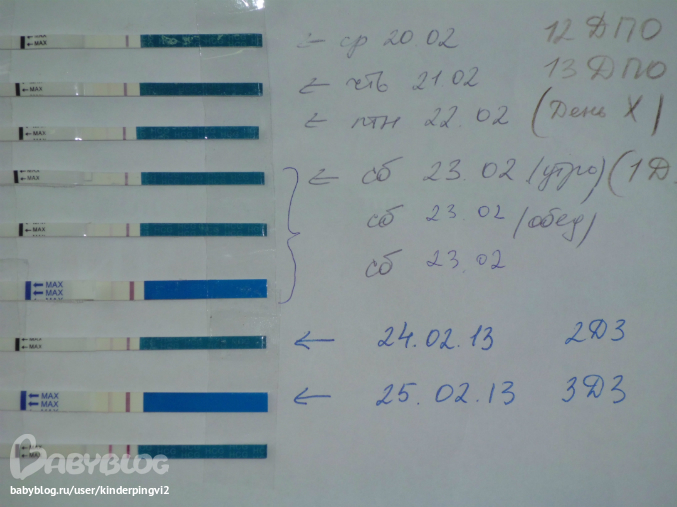 ← MAX
← ср 20 02 12 ДПО
← MAX
← чтв 21 02 13 ДПО
← MAX
← птн 22.02 (День X)
← MAX
← сб 23.02 (утро) (1 Д
← MAX
сб 23.02 (обед)
← MAX
← MAX
← MAX
сб 23.02
← MAX
← 24.02.13 2ДЗ
← MAX
← MAX
← MAX
← 25.02.13 3ДЗ
BABYBLOG
babyblog.ru/user/kinderpingvi2